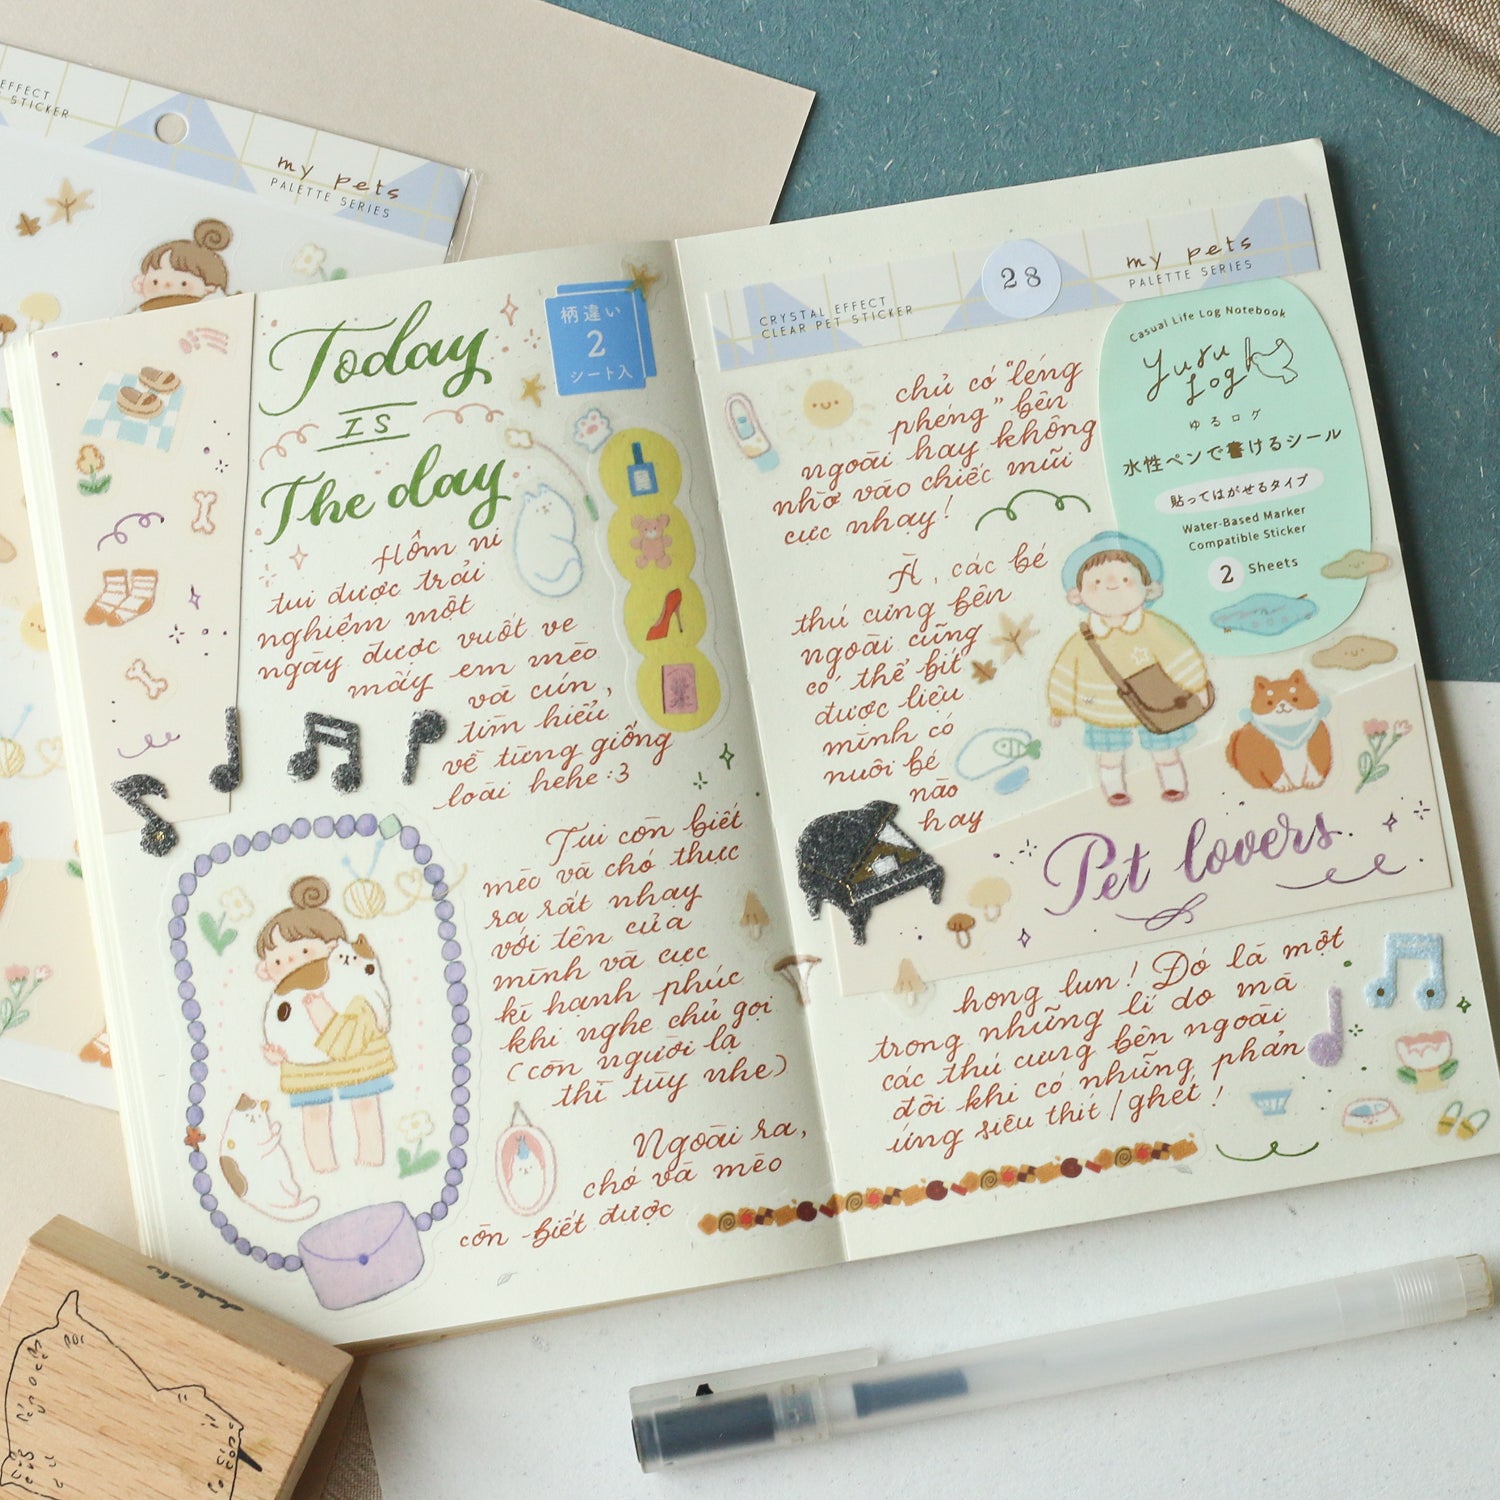 EFFECT
STICKER
my pets
PALETTE SERIES
Today
IS
The day
柄違い
2
シート入
Hôm ni
tui được trải
nghiệm một
ngày được vuốt ve
mấy em mèo
và cún,
tìm hiểu
về từng giống
loài hehe :3
Tui còn biết
mèo và chó thực
ra rất nhạy
với tên của
mình và cực
kì hạnh phúc
khi nghe chủ gọi
(còn người lạ
thì tùy nhe)
Ngoài ra,
chó và mèo
còn biết được
CRYSTAL EFFECT
CLEAR PET STICKER
28
my pets
PALETTE SERIES
chủ có "léng
phéng" bên
ngoài hay không
nhờ vào chiếc mũi
cực nhạy!
À, các bé
thú cưng bên
ngoài cũng
có thể bít
được liệu
mình có
nuôi bé
nào
hay
Casual Life Log Notebook
yuru
log
ゆるログ
水性ペンで書けるシール
貼ってはがせるタイプ
Water-Based Marker
Compatible Sticker
2 Sheets
Pet lovers
hong lun! Đó là một
trong những lí do mà
các thú cưng bên ngoài
đôi khi có những phản
ứng siêu thít / ghét!